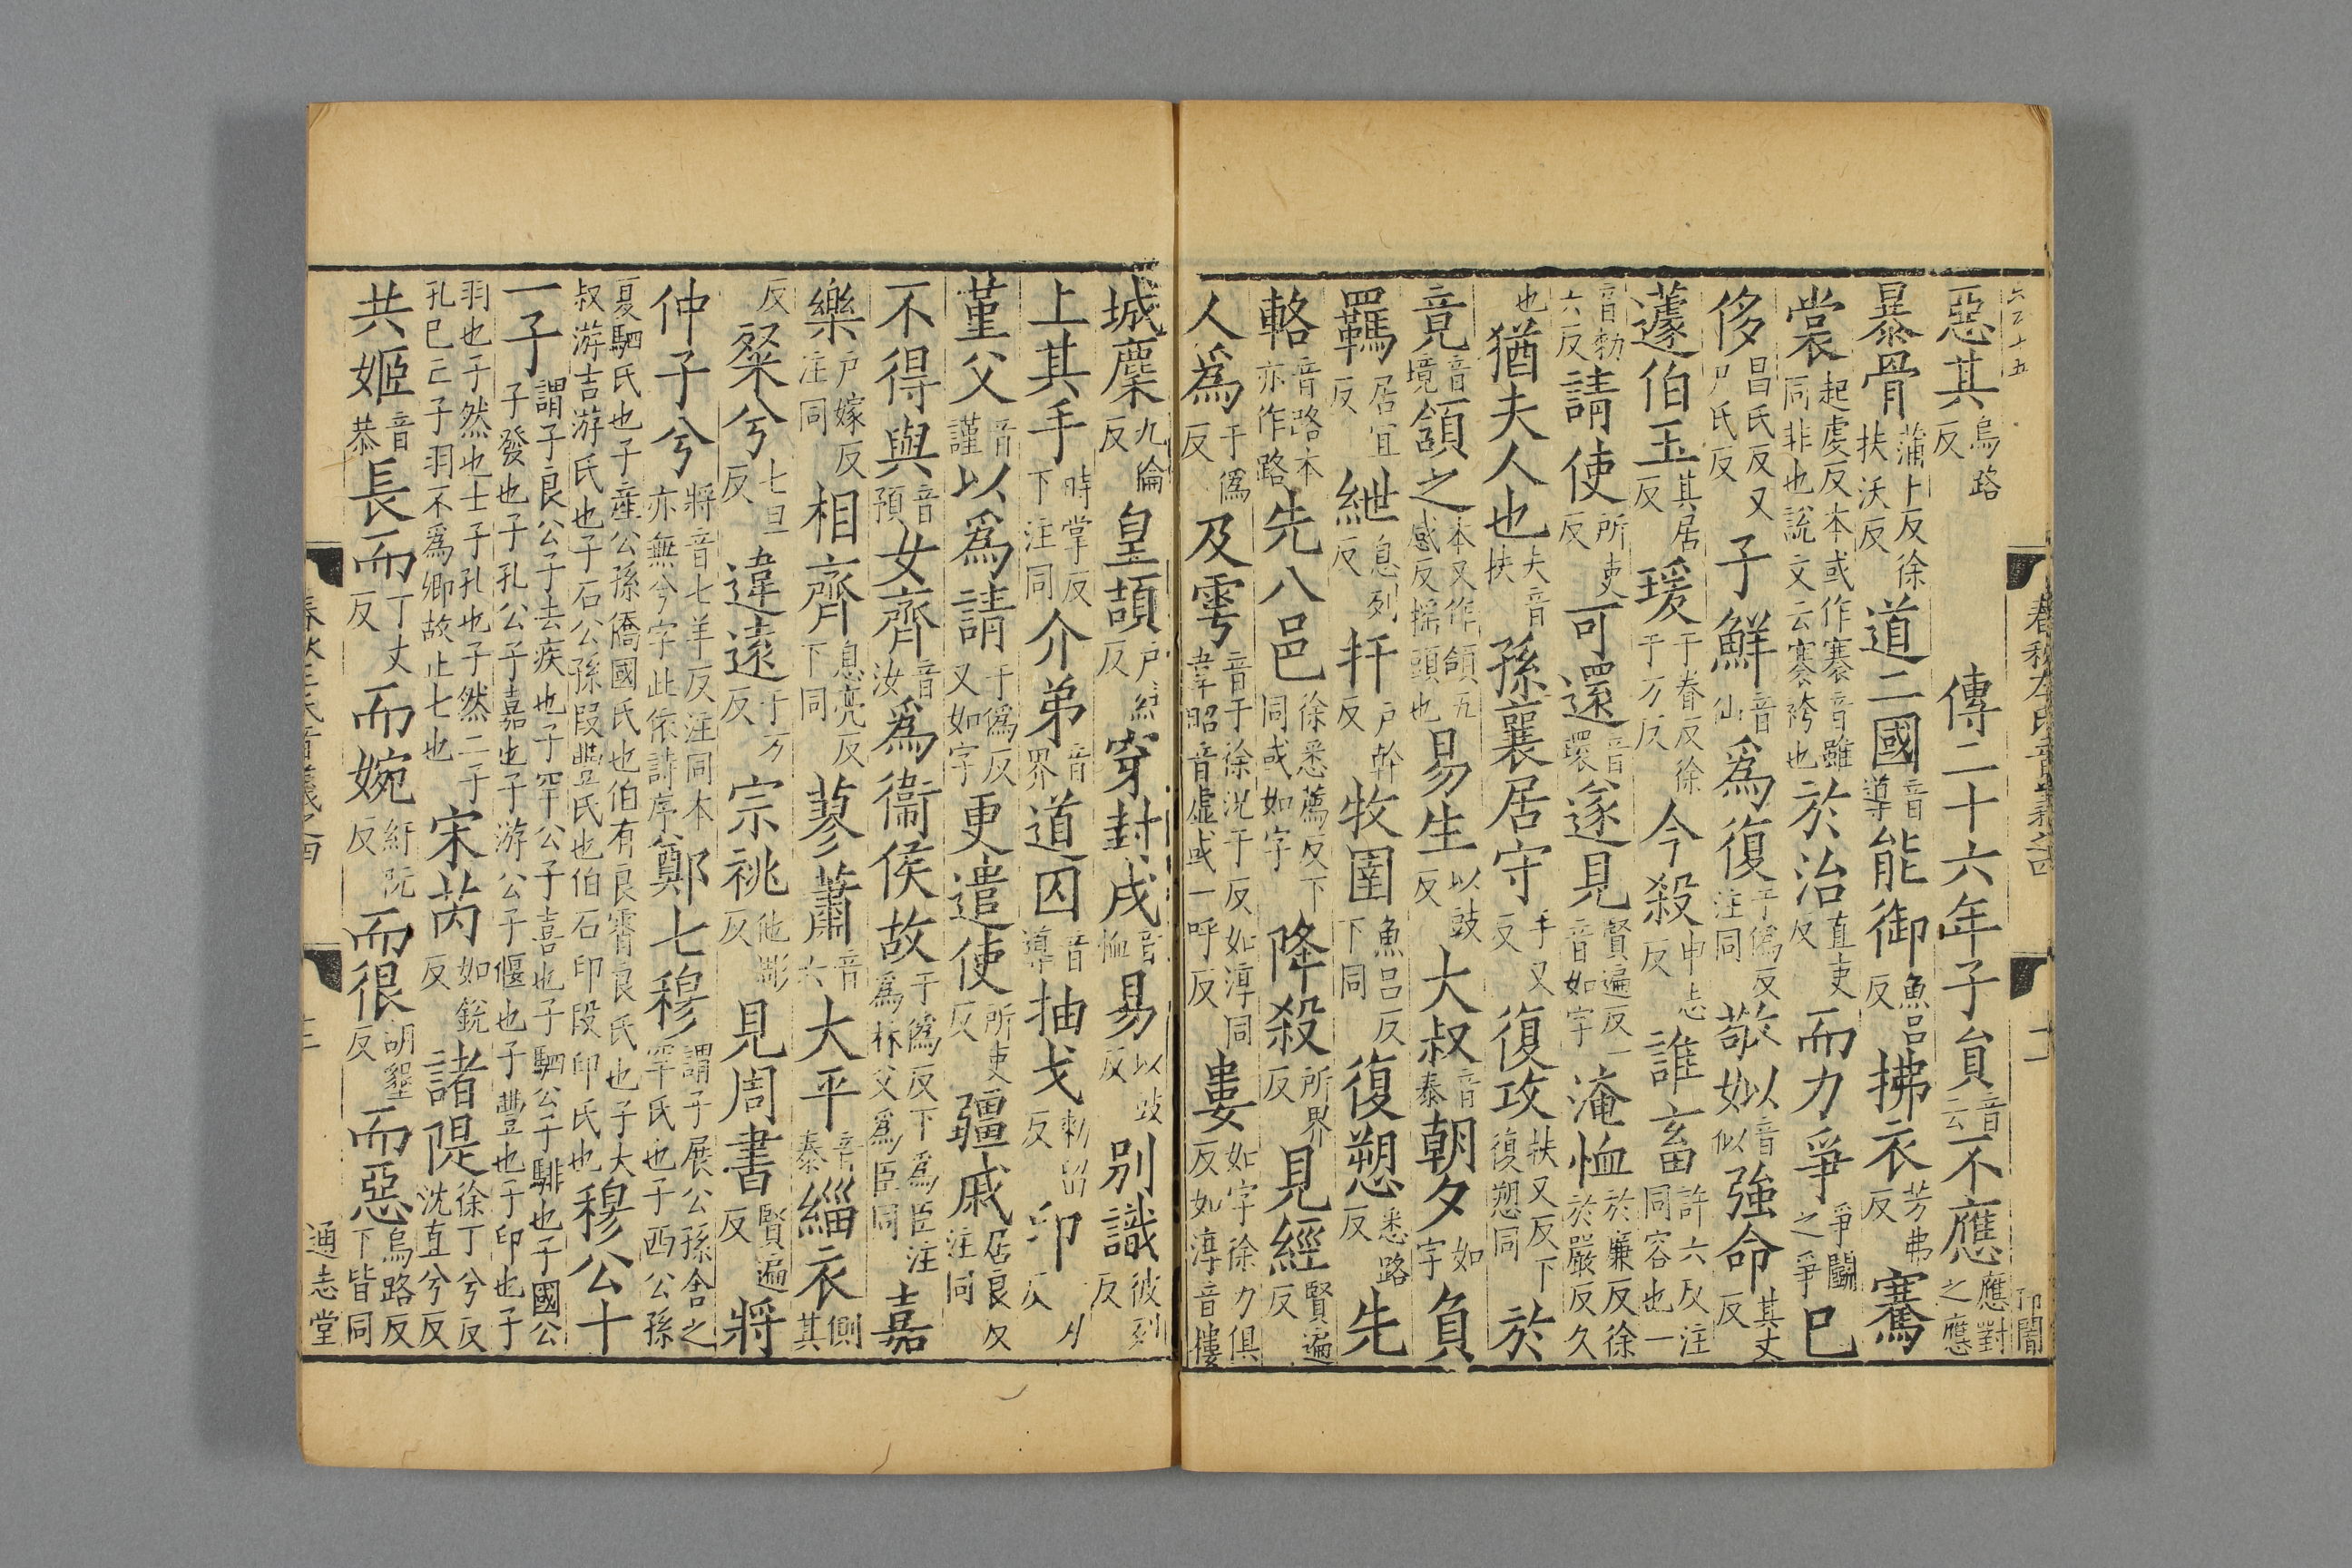 惡其烏路反 傳二十六年子貟音云不應應對之應
暴骨蒲卜反徐扶沃反道二國音導能御魚呂反拂衣芳弗反騫
裳起虔反本或作褰音雖同非也說文云褰袴也於治直吏反而力爭爭鬭之爭已
侈昌氏反又尸氏反子鮮音仙爲復于僞反注同敬姒音似強命其丈反
蘧伯玉其居反瑗于眷反徐于万反今殺申志反誰畜許六反注同容也一
音勑六反請使所吏反可還音環遂見賢遍反一音如字淹恤於廉反徐於嚴反久
也猶夫人也夫音扶孫襄居守手又反復攻扶又反下復愬同於
竟音境頷之本又作頜五感反搖頭也易生以豉反大叔音泰朝夕如字負
羈居宜反紲息列反扞戶幹反牧圉魚呂反下同復愬悉路反先
輅音路本亦作路先八邑徐悉薦反下同或如字降殺所界反見經賢遍反
人爲于僞反及雩音于徐況于反如淳同韋昭音虛或一呼反婁如字徐力俱反如淳音樓
城麇九倫反皇頡戶結反穿封戌音恤易以豉反別識彼列反
上其手時掌反下注同介弟音界道囚音導抽戈勑留反印一刃反
堇父音謹以爲請于僞反又如字更遣使所吏反疆戚居良反注同
不得與音預女齊音汝爲衞侯故于僞反下爲臣注爲林父爲臣同嘉
樂戶嫁反注同相齊息亮反下同蓼蕭音六大平音泰緇衣側其
反粲兮七旦反違遠于万反宗祧他彫反見周書賢遍反將
仲子兮將音七羊反注同本亦無兮字此依詩序鄭七穆謂子展公孫舍之罕氏也子西公孫
夏駟氏也子産公孫僑國氏也伯有良霄良氏也子大叔游吉游氏也子石公孫段豐氏也伯石印段印氏也穆公十
一子謂子良公子去疾也子罕公子喜也子駟公子騑也子國公子發也子孔公子嘉也子游公子偃也子豐也子印也子
羽也子然也士子孔也子然二子孔巳亡子羽不爲卿故止七也宋芮如銳反諸隄徐丁兮反沈直兮反
共姬音恭長而丁丈反而婉紆阮反而很胡墾反而惡烏路反下皆同
春秋左氏音義之四
通志堂